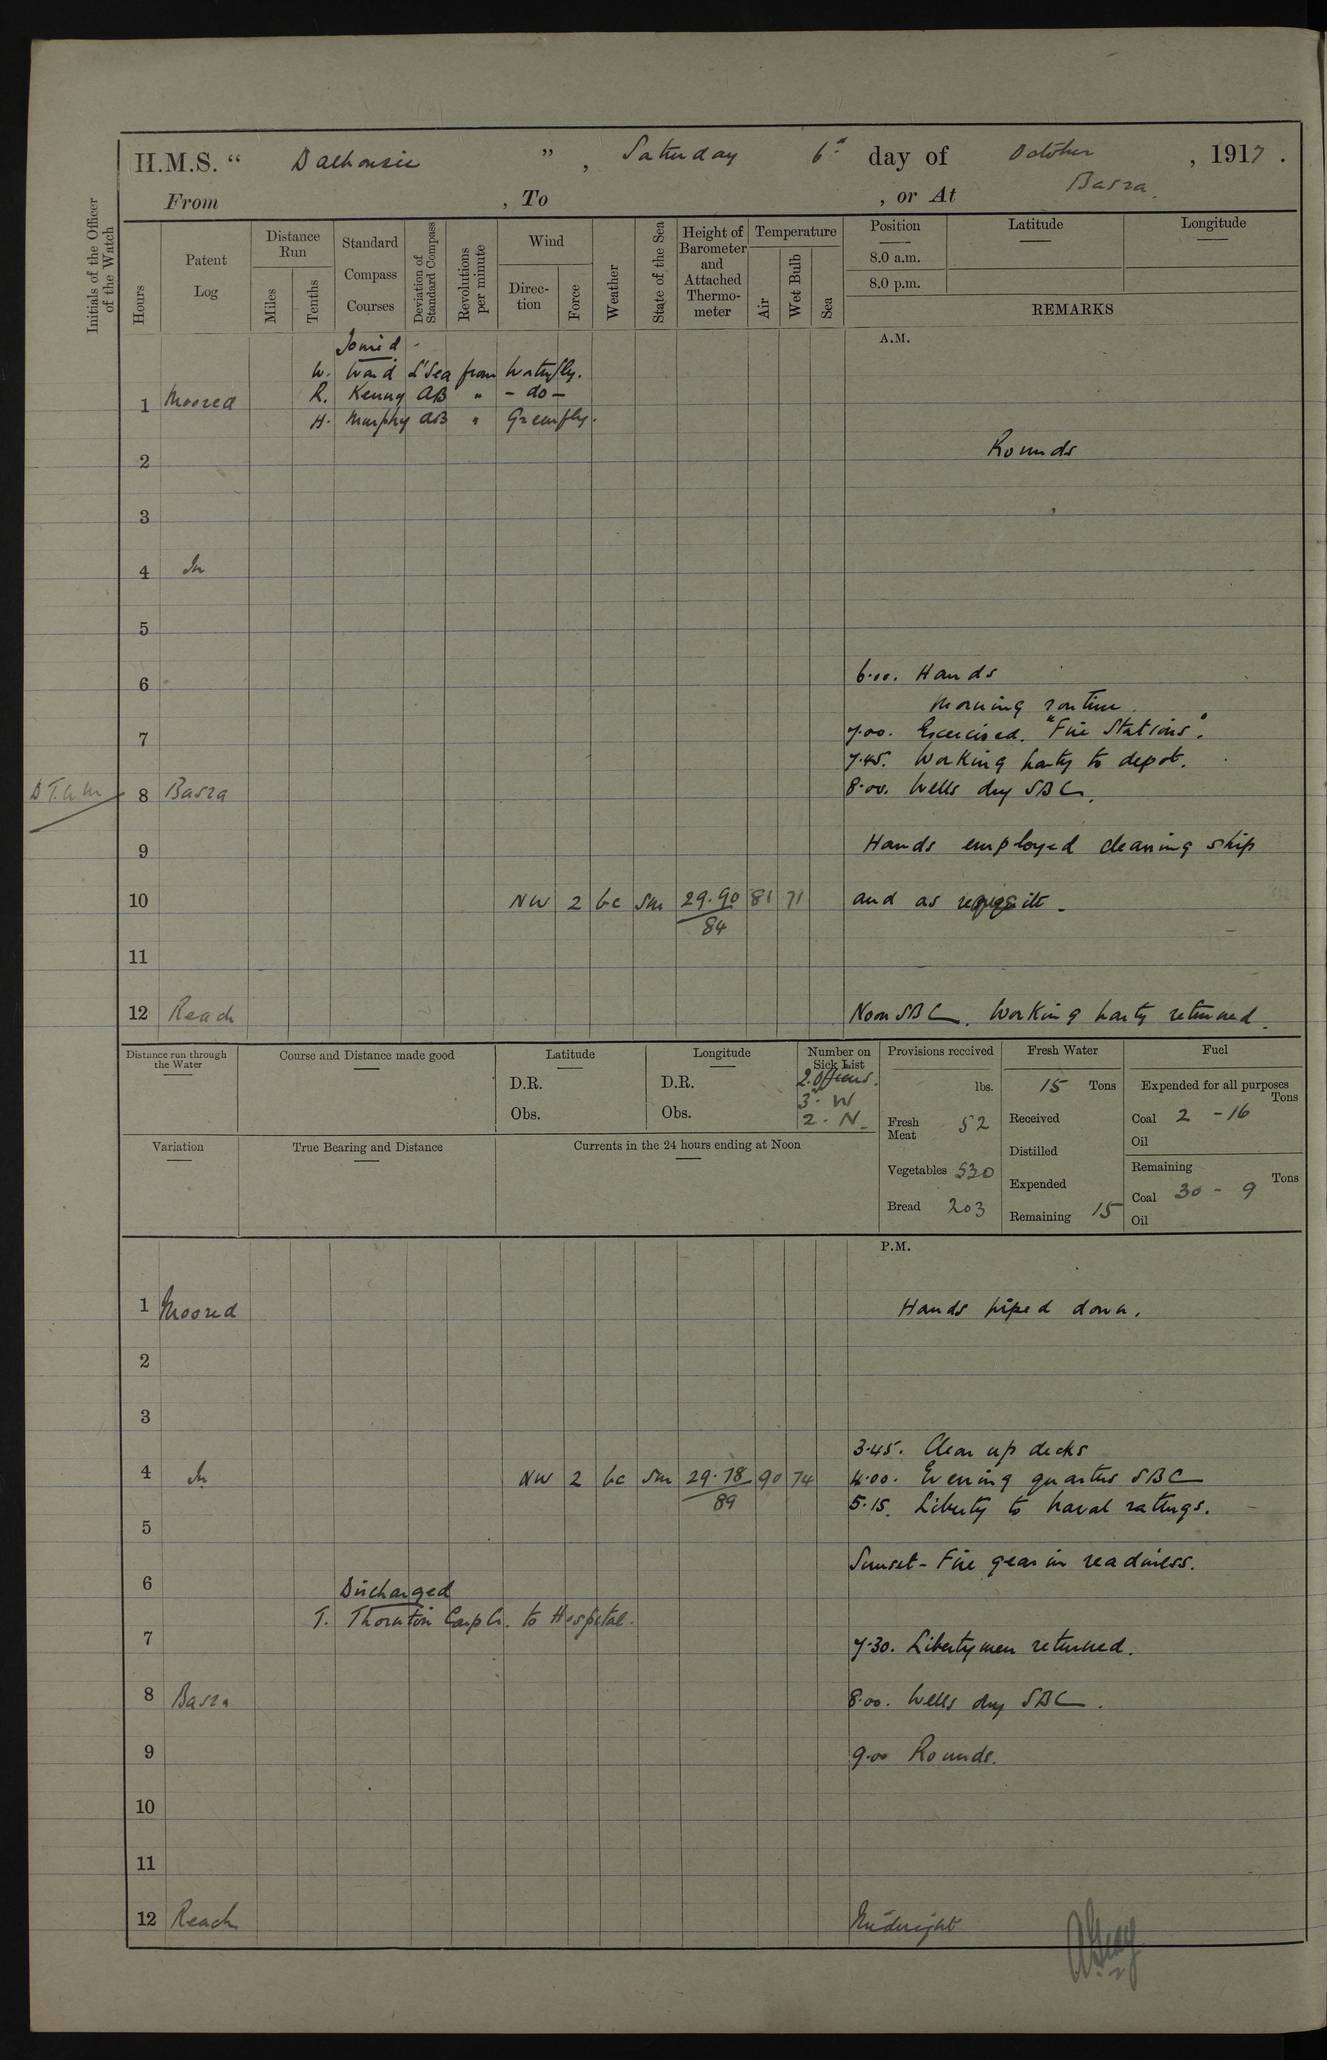 H.M.S. “ Dalhousie ” , Saturday 6th day of October , 1917 .
From , To , or At Basra.
Initials of the Officer of the Watch
Hours
Patent Log
Distance Run
Miles
Tenths
Standard Compass Courses
Deviation of Standard Compass
Revolutions per minute
Wind
Direction
Force
Weather
State of the Sea
Height of Barometer and Attached Thermometer
Temperature
Air
Wet Bulb
Sea
Position
8.0 a.m.
8.0 p.m.
Latitude
Longitude
REMARKS
A.M.
Joined -
W. Ward L'Sea from Waterfly.
1 Moored R. Kenny AB " - do -
H. Murphy AB " Greenfly.
2 Rounds
3
4 In
5
6 6.00. Hands
Morning routine.
7 7.00. Exercised "Fire Stations".
7.45. Working party to depot.
8 Basra 8.00. Wells dry SBC.
9 Hands employed cleaning ship
10 NW 2 bc Sm 29.90 81 71 and as requisite.
84
11
12 Reach Noon SBC. Working party returned.
Distance run through the Water
Course and Distance made good
Latitude
D.R.
Obs.
Longitude
D.R.
Obs.
Number on Sick List
2. Officers.
3. W
2. N.
Provisions received
lbs.
Fresh Meat 52
Vegetables 530
Bread 203
Fresh Water
15 Tons
Received
Distilled
Expended
Remaining 15
Fuel
Expended for all purposes
Tons
Coal 2 - 16
Oil
Remaining
Tons
Coal 30 - 9
Oil
Variation
True Bearing and Distance
Currents in the 24 hours ending at Noon
P.M.
1 Moored Hands piped down.
2
3
3.45. Clear up decks
4 In NW 2 bc Sm 29.78 90 74 4.00. Evening quarters SBC
89 5.15. Liberty to naval ratings.
5
Sunset - Fire gear in readiness.
6 Discharged
T. Thornton to Hospital.
7 7.30. Liberty men returned.
8 Basra 8.00. Wells dry SBC.
9 9.00 Rounds.
10
11
12 Reach Midnight